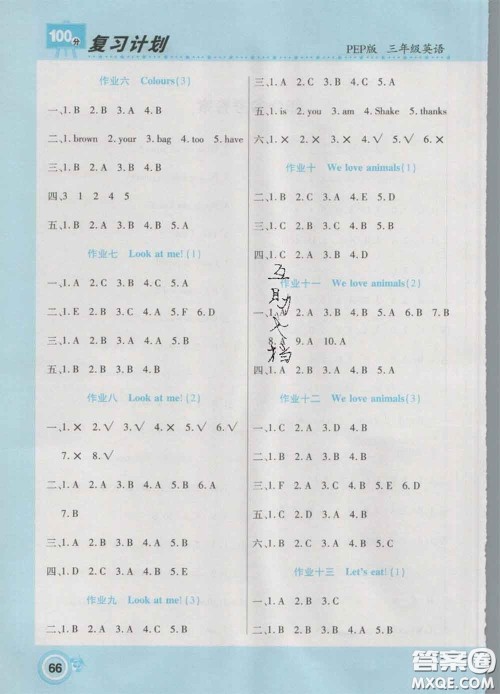 100分
复习计划
PEP版 三年级英语
作业六 Colours{3}
一、1. B 2. B 3. A 4. B
二、1. brown 2. your 3. bag 4. too 5. have
三、1. B 2. B 3. A 4. B
四、3 1 2 4 5
五、1. B 2. A 3. B 4. B 5. A
作业七 Look at me!{1}
一、1. A 2. A 3. B 4. B 5. A
二、1. E 2. B 3. C 4. A 5. F 6. D
三、1. B 2. A 3. A 4. B 5. A
作业八 Look at me!{2}
一、1. × 2. √ 3. × 4. × 5. √ 6. √
7. × 8. √
二、1. A 2. A 3. B 4. A 5. B 6. A
7. B
三、1. A 2. B 3. A 4. B 5. A
四、1. D 2. E 3. C 4. A 5. B
作业九 Look at me!{3}
二、1. B 2. B 3. A 4. A 5. B
三、1. A 2. A 3. B 4. A 5. B
五、1. is 2. you 3. am 4. Shake 5. thanks
六、1. × 2. × 3. √ 4. √ 5. √ 6. ×
作业十 We love animals{1}
二、1. B 2. D 3. A 4. E 5. C
三、1. B 2. A 3. A 4. B 5. B
四、1. C 2. A 3. B 4. D
作业十一 We love animals{2}
一、1. 2. A 3. B 4. A 5. B 6. B 7. B
8. A 9. A 10. A
四、1. A 2. B 3. A 4. B 5. A
作业十二 We love animals{3}
一、1. C 2. A 3. B 4. C
二、1. A 2. B 3. A 4. B 5. B
三、1. F 2. A 3. C 4. E 5. B 6. D
五、1. C 2. D 3. A 4. B
六、1. B 2. B 3. A 4. B 5. B
作业十三 Let's eat!{1}
一、1. A 2. B 3. C
二、1. B 2. B 3. A 4. A 5. A
互助文档
66
答案圈
MXQE.COM